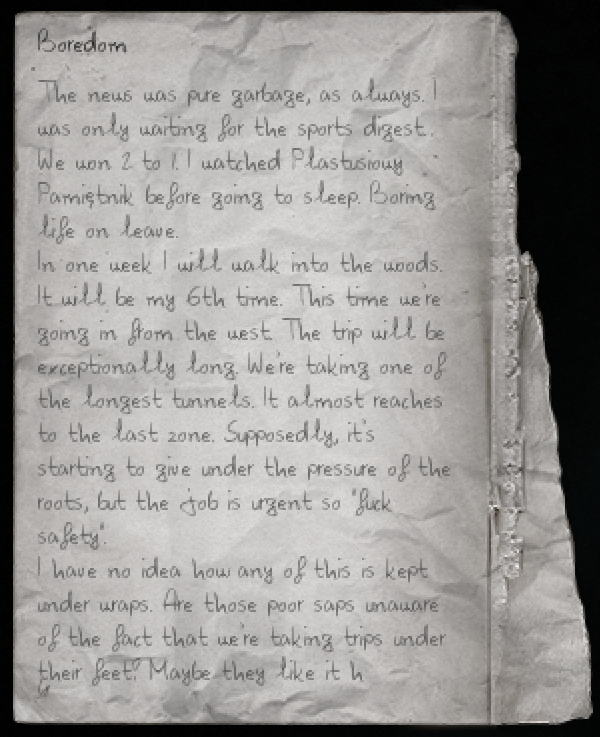 Boredom
The news was pure garbage, as always. I
was only waiting for the sports digest.
We won 2 to 1. I watched Plastusiowy
Pamiętnik before going to sleep. Boring
life on leave.
In one week I will walk into the woods.
It will be my 6th time. This time we're
going in from the west. The trip will be
exceptionally long. We're taking one of
the longest tunnels. It almost reaches
to the last zone. Supposedly, it's
starting to give under the pressure of the
roots, but the job is urgent so "fuck
safety".
I have no idea how any of this is kept
under wraps. Are those poor saps unaware
of the fact that we're taking trips under
their feet? Maybe they like it h